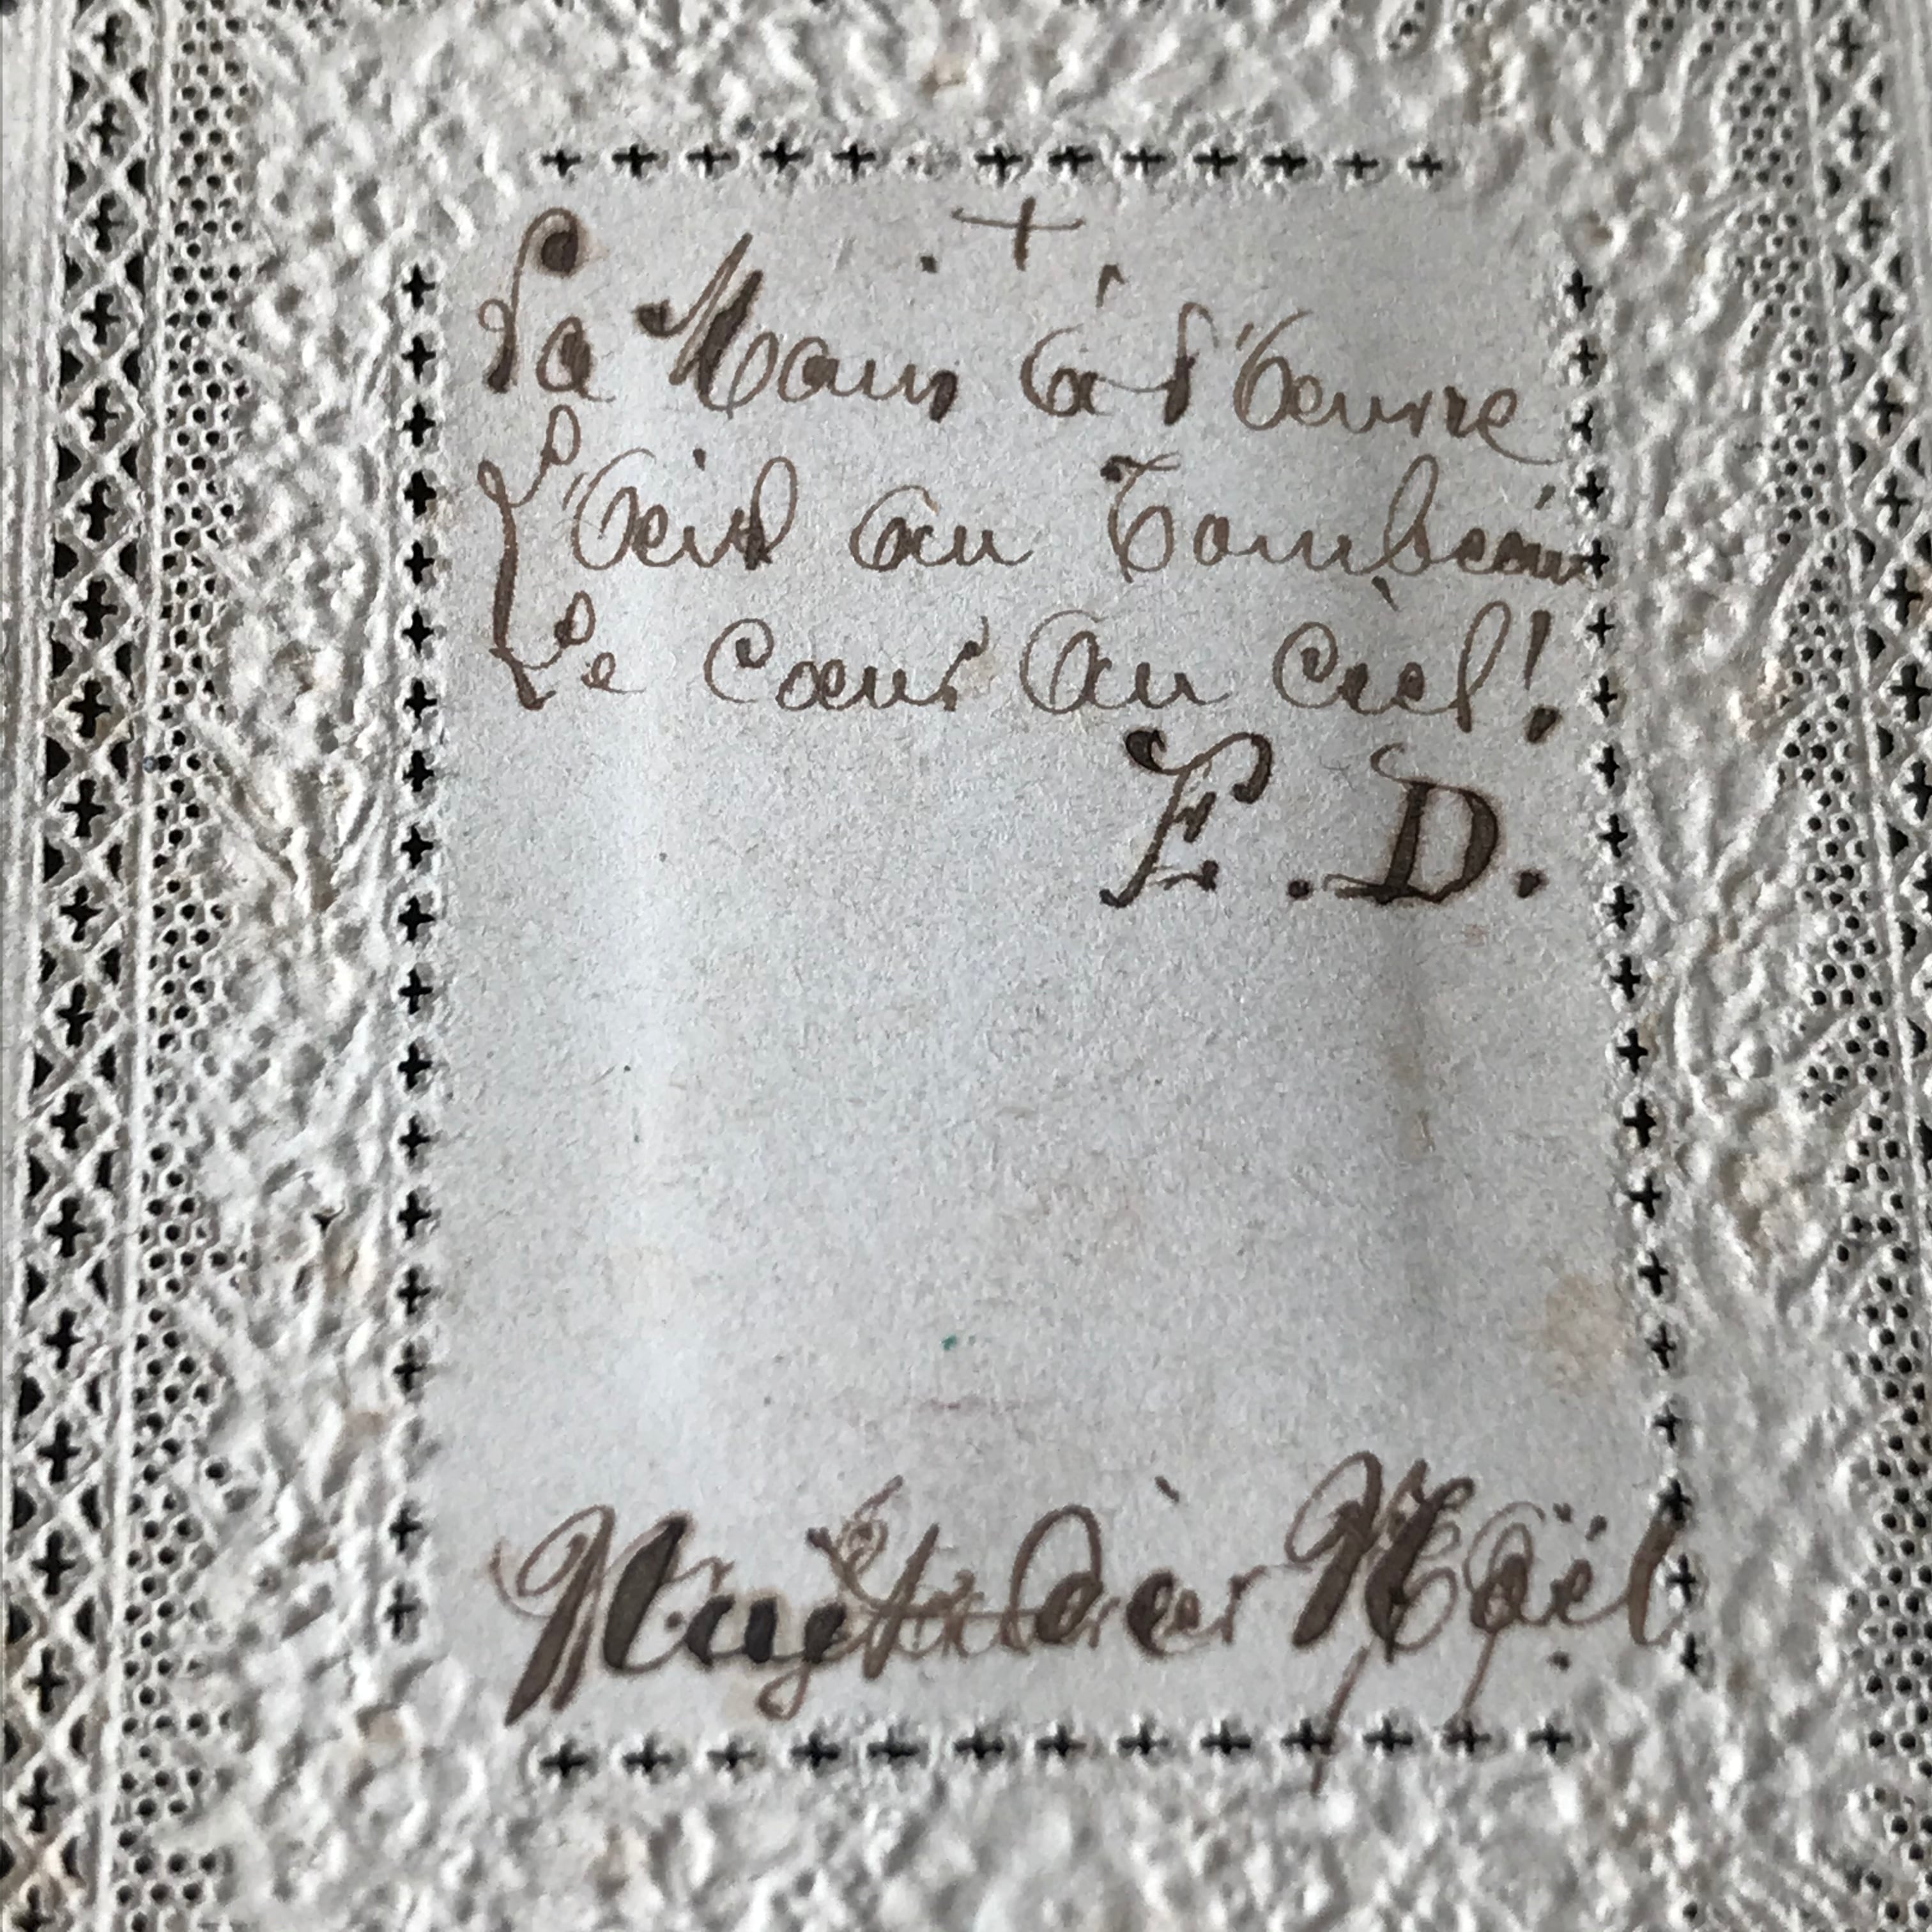 +
La Main à l'Oeuvre
L'Oeil au Tombeau
Le Coeur Au Ciel!
E. D.
Nuyt der Noël